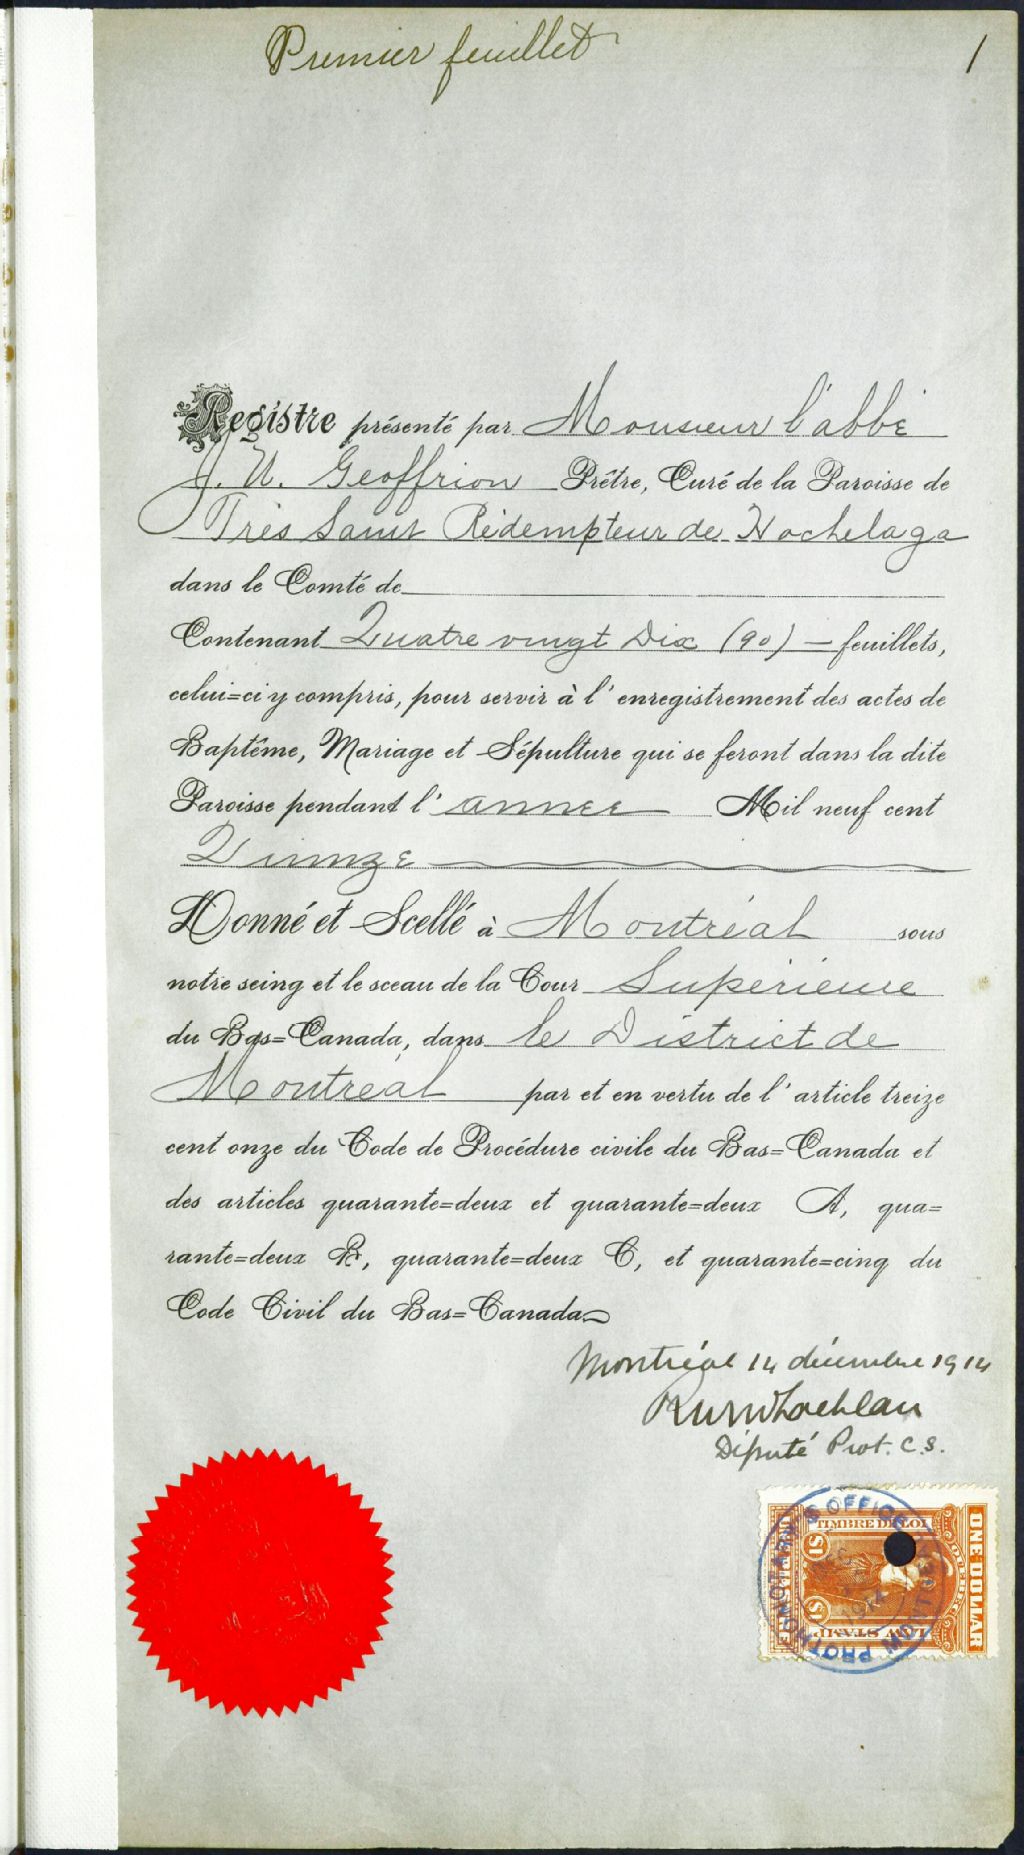 Premier feuillet
1
Registre présenté par Monsieur l'abbé
J. U. Geoffrion Prêtre, Curé de la Paroisse de
Très Saint Rédempteur de Hochelaga
dans le Comté de
Contenant Quatre vingt Dix (90) — feuillets,
celui=ci y compris, pour servir à l'enregistrement des actes de
Baptême, Mariage et Sépulture qui se feront dans la dite
Paroisse pendant l'année Mil neuf cent
Quinze
Donné et Scellé à Montréal sous
notre seing et le sceau de la Cour Supérieure
du Bas=Canada, dans le District de
Montréal par et en vertu de l'article treize
cent onze du Code de Procédure civile du Bas=Canada et
des articles quarante=deux et quarante=deux A, qua=
rante=deux B, quarante=deux C, et quarante=cinq du
Code Civil du Bas=Canada
Montréal 14 décembre 1914
Député Prot. C.S.
PROTHONOTARY'S OFFICE MONTREAL
1914
TIMBRE DE LOI
QUEBEC
LAW STAMP
$1
$1
ONE DOLLAR
UNE PIASTRE